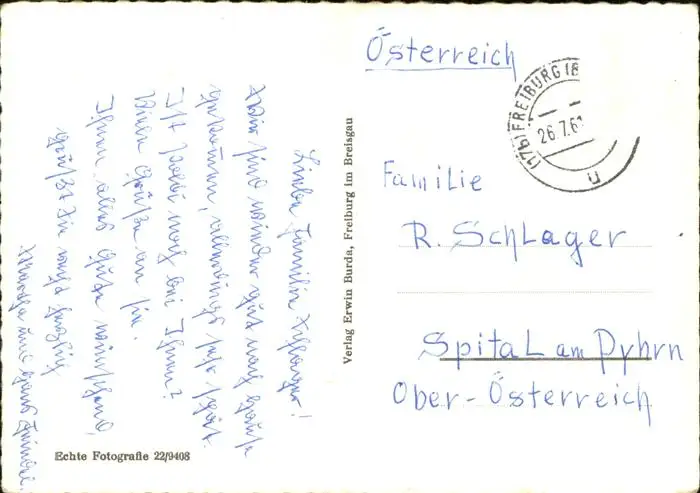 Liebe Familie Schlager!
Wir sind wieder gut nach Hause
gekommen, allerdings sehr spät.
Ist noch bei Ihnen?
Vielen Grüße an sie.
Ihnen alles Gute wünschend
grüßt Ihnen herzlich
und Hans
Echte Fotografie 22/9408
Verlag Erwin Burda, Freiburg im Breisgau
Österreich
(17b) FREIBURG (B
26.7.61
n
Familie
R. Schlager
Spital am Pyhrn
Ober-Österreich